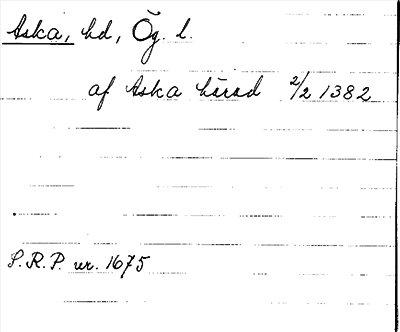 Aska, hd, Ög. l.
af Aska härad 2/2 1382
S.R.P. nr. 1675